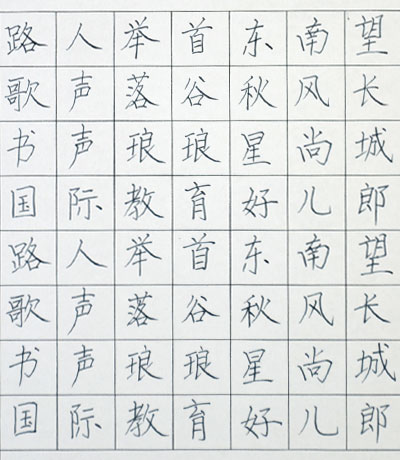 路人举首东南望
歌声落谷秋风长
书声琅琅星尚城
国际教育好儿郎
路人举首东南望
歌声落谷秋风长
书声琅琅星尚城
国际教育好儿郎